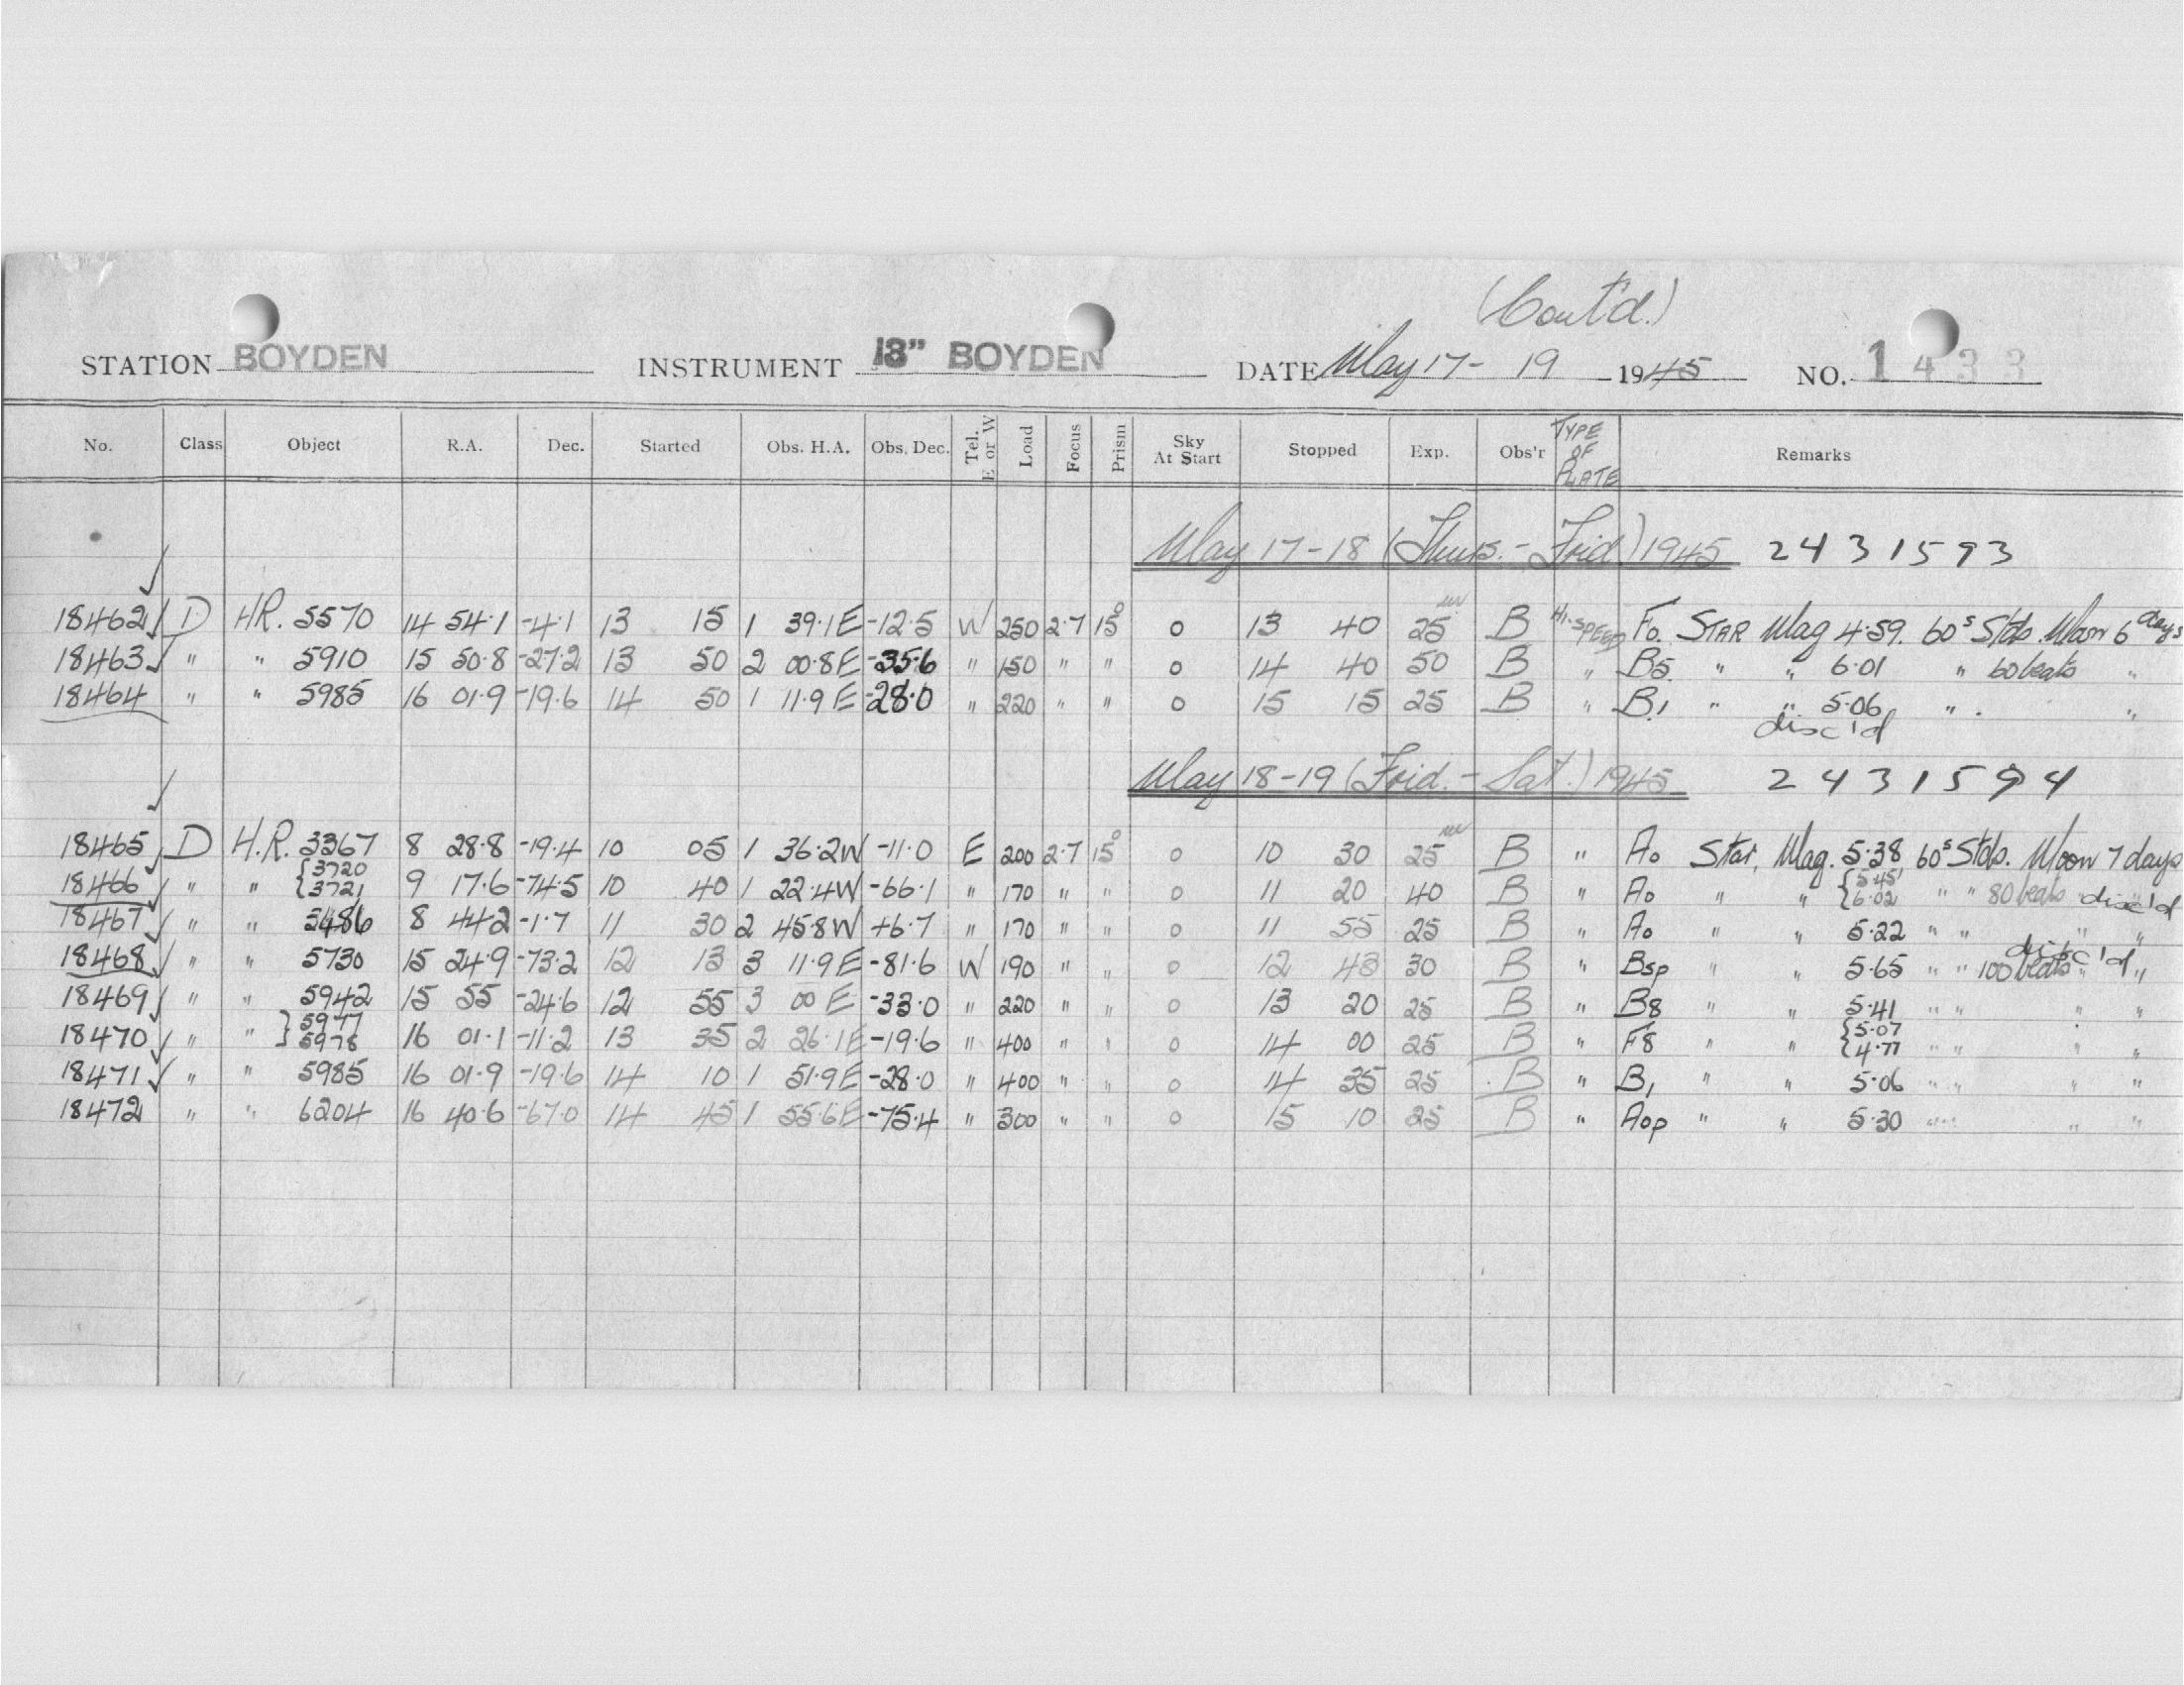 (Cont'd.)
STATION BOYDEN INSTRUMENT 13" BOYDEN DATE May 17- 19 1945 NO. 1433
No. Class Object R.A. Dec. Started Obs. H.A. Obs. Dec. Tel. E or W Load Focus Prism Sky At Start Stopped Exp. Obs'r TYPE OF PLATE Remarks
May 17-18 (Thurs.-Frid) 1945 2431593
18462 D HR. 5570 14 54.1 -4.1 13 15 1 39.1E -12.5 W 250 2.7 15° 0 13 40 25 B HI-SPEED F0. STAR Mag 4.59. 60s Stds. Moon 6 days
18463 " " 5910 15 50.8 -27.2 13 50 2 00.8E -35.6 " 150 " " 0 14 40 50 B " B5. " " 6.01 " 60 beats "
18464 " " 5985 16 01.9 -19.6 14 50 1 11.9E -28.0 " 220 " " 0 15 15 25 B " B1 " " 5.06 " . "
disc'd
May 18-19 (Frid.-Sat.) 1945 2431594
18465 D H.R. 3367 8 28.8 -19.4 10 05 1 36.2W -11.0 E 200 2.7 15° 0 10 30 25 B " A0 Star, Mag. 5.38 60s Stds. Moon 7 days
18466 " " {3720 3721 9 17.6 -74.5 10 40 1 22.4W -66.1 " 170 " " 0 11 20 40 B " A0 " " {5.45 6.02 " " 80 beats " disc'd
18467 " " 3486 8 44.2 -1.7 11 30 2 45.8W +6.7 " 170 " " 0 11 55 25 B " A0 " " 5.22 " " " "
disc'd
18468 " " 5730 15 24.9 -73.2 12 13 3 11.9E -81.6 W 190 " " 0 12 43 30 B " B5p " " 5.65 " " 100 beats " "
18469 " " 5942 15 55 -24.6 12 55 3 00 E -33.0 " 220 " " 0 13 20 25 B " B8 " " 5.41 " " " "
18470 " " }5977 5978 16 01.1 -11.2 13 35 2 26.1E -19.6 " 400 " " 0 14 00 25 B " F8 " " {5.07 4.77 " " " "
18471 " " 5985 16 01.9 -19.6 14 10 1 51.9E -28.0 " 400 " " 0 14 35 25 B " B1 " " 5.06 " " " "
18472 " " 6204 16 40.6 -67.0 14 45 1 55.6E -75.4 " 300 " " 0 15 10 25 B " A0p " " 5.30 " " " "